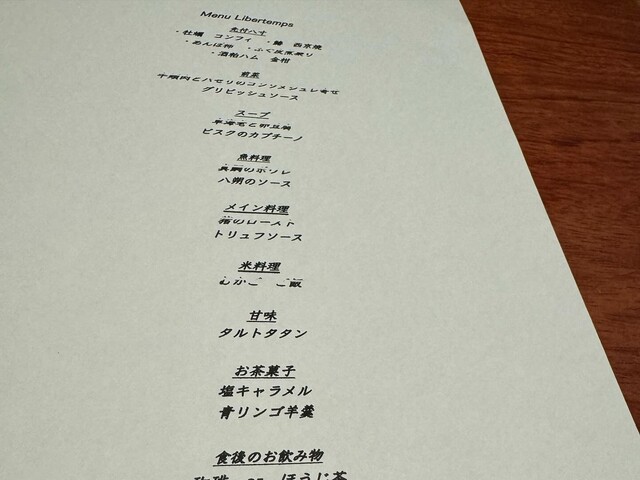 Menu Libertemps
先付八寸
・牡蠣 コンフィ ・鰆 西京焼
・あんぽ柿 ・ふぐ皮煮凝り
・酒粕ハム 金柑
前菜
のコンソメジュレ寄せ
グリビッシュソース
スープ
ビスクのカプチーノ
魚料理
真鯛のポワレ
八朔のソース
メイン料理
のロースト
トリュフソース
米料理
むかご ご飯
甘味
タルトタタン
お茶菓子
塩キャラメル
青リンゴ羊羹
食後のお飲み物
珈琲 or ほうじ茶